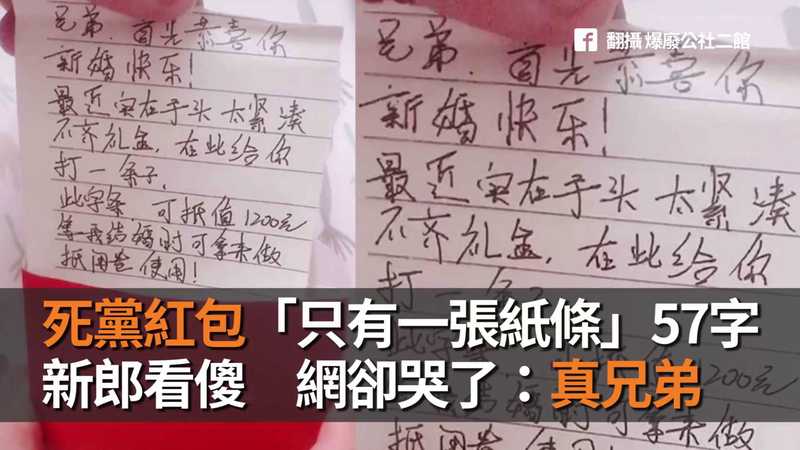 翻攝 爆廢公社二館
兄弟.首先恭喜你
新婚快乐!
最近实在手头太紧凑
不齐礼金,在此给你
打一条子,
此字条,可抵值1200元
等我结婚时可拿来做
抵用卷使用!
兄弟.首先恭喜你
新婚快乐!
最近实在手头太紧凑
不齐礼金,在此给你
打一条
1200元
可拿来做
抵用卷使用!
死黨紅包「只有一張紙條」57字
新郎看傻 網卻哭了：真兄弟